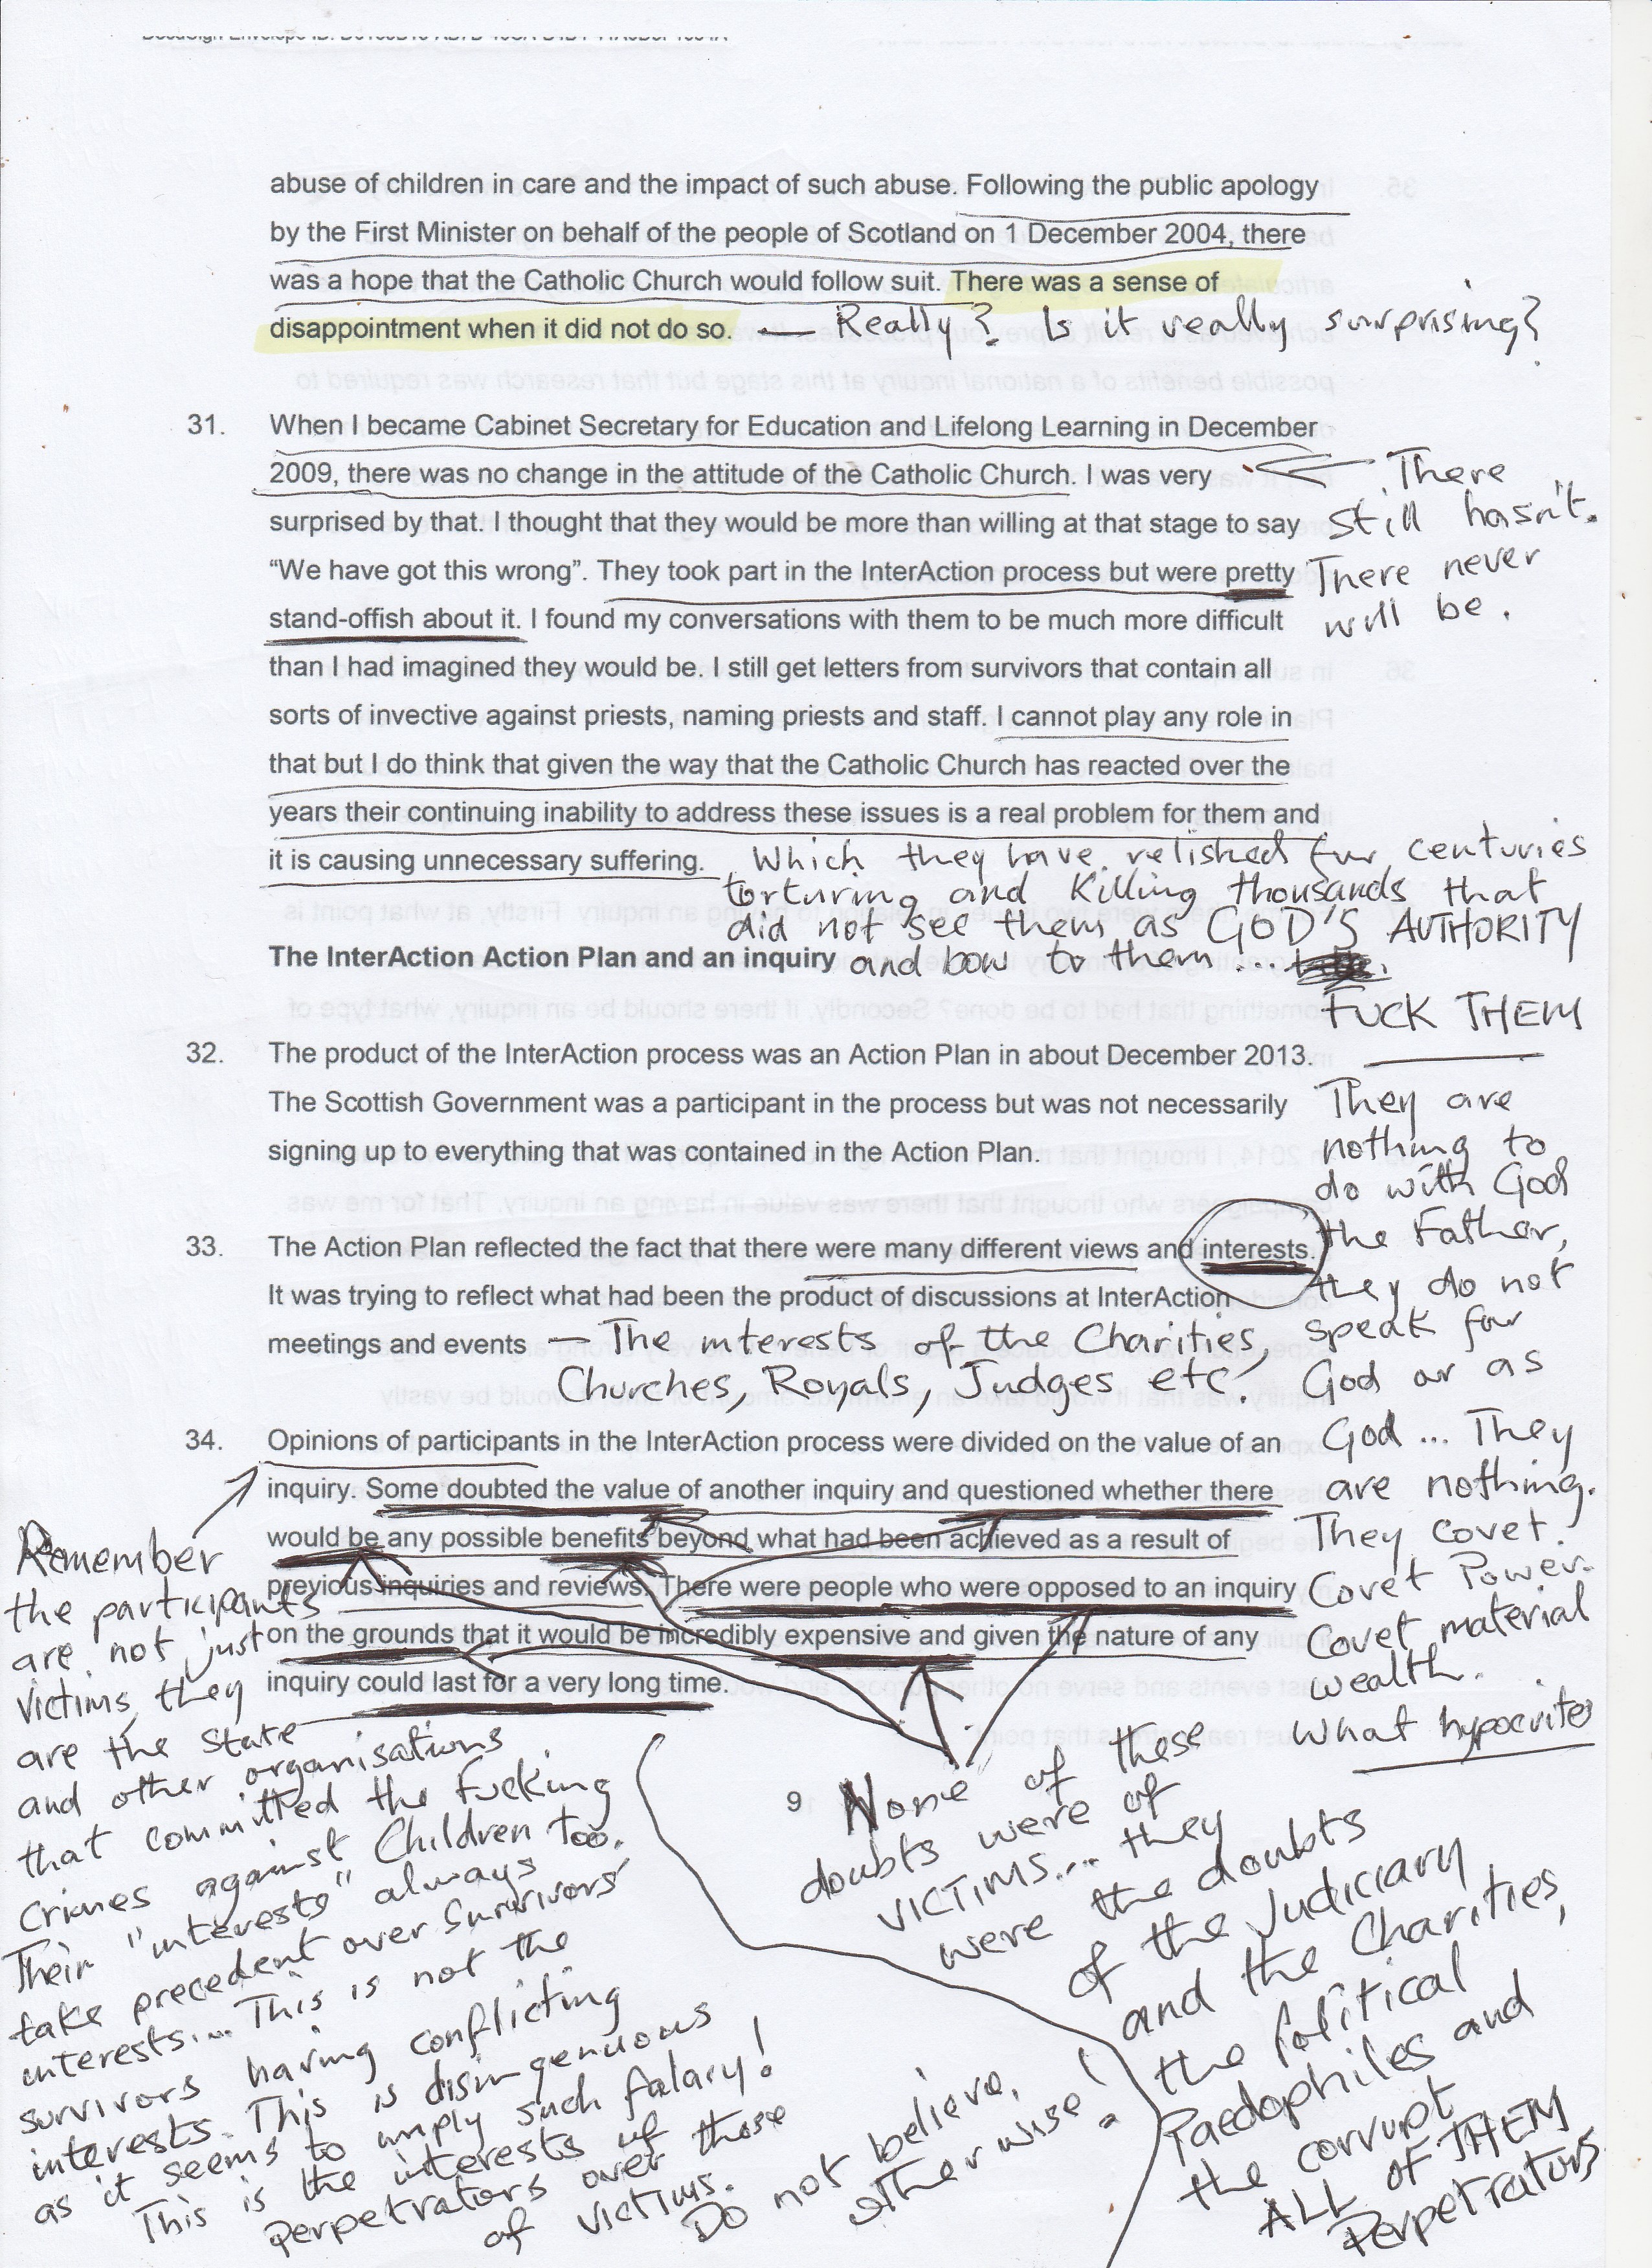 abuse of children in care and the impact of such abuse. Following the public apology
by the First Minister on behalf of the people of Scotland on 1 December 2004, there
was a hope that the Catholic Church would follow suit. There was a sense of
disappointment when it did not do so. — Really? Is it really surprising?
31. When I became Cabinet Secretary for Education and Lifelong Learning in December
2009, there was no change in the attitude of the Catholic Church. I was very
surprised by that. I thought that they would be more than willing at that stage to say
“We have got this wrong”. They took part in the InterAction process but were pretty
stand-offish about it. I found my conversations with them to be much more difficult
than I had imagined they would be. I still get letters from survivors that contain all
sorts of invective against priests, naming priests and staff. I cannot play any role in
that but I do think that given the way that the Catholic Church has reacted over the
years their continuing inability to address these issues is a real problem for them and
it is causing unnecessary suffering.
There
still hasn't.
There never
will be.
Which they have relished for centuries
torturing and killing thousands that
did not see them as GOD'S AUTHORITY
and bow to them ...
FUCK THEM
The InterAction Action Plan and an inquiry
32. The product of the InterAction process was an Action Plan in about December 2013.
The Scottish Government was a participant in the process but was not necessarily
signing up to everything that was contained in the Action Plan.
33. The Action Plan reflected the fact that there were many different views and interests.
It was trying to reflect what had been the product of discussions at InterAction
meetings and events — The interests of the Charities,
Churches, Royals, Judges etc.
34. Opinions of participants in the InterAction process were divided on the value of an
inquiry. Some doubted the value of another inquiry and questioned whether there
would be any possible benefits beyond what had been achieved as a result of
previous inquiries and reviews. There were people who were opposed to an inquiry
on the grounds that it would be incredibly expensive and given the nature of any
inquiry could last for a very long time.
They are
nothing to
do with God
the Father,
they do not
speak for
God or as
God ... They
are nothing.
They covet.
Covet Power.
Covet material
wealth.
What hypocrites
Remember
the participants
are not just
victims, they
are the State
and other organisations
that committed the fucking
crimes against Children too.
Their "interests" always
take precedent over Survivors'
interests... This is not the
survivors having conflicting
interests. This is disingenuous
as it seems to imply such falacy!
This is the interests of
Perpetrators over those
of victims.
Do not believe
otherwise!
9
None of these
doubts were of
VICTIMS... they
were the doubts
of the Judiciary
and the Charities,
the Political
Paedophiles and
the corrupt
ALL OF THEM
Perpetrators